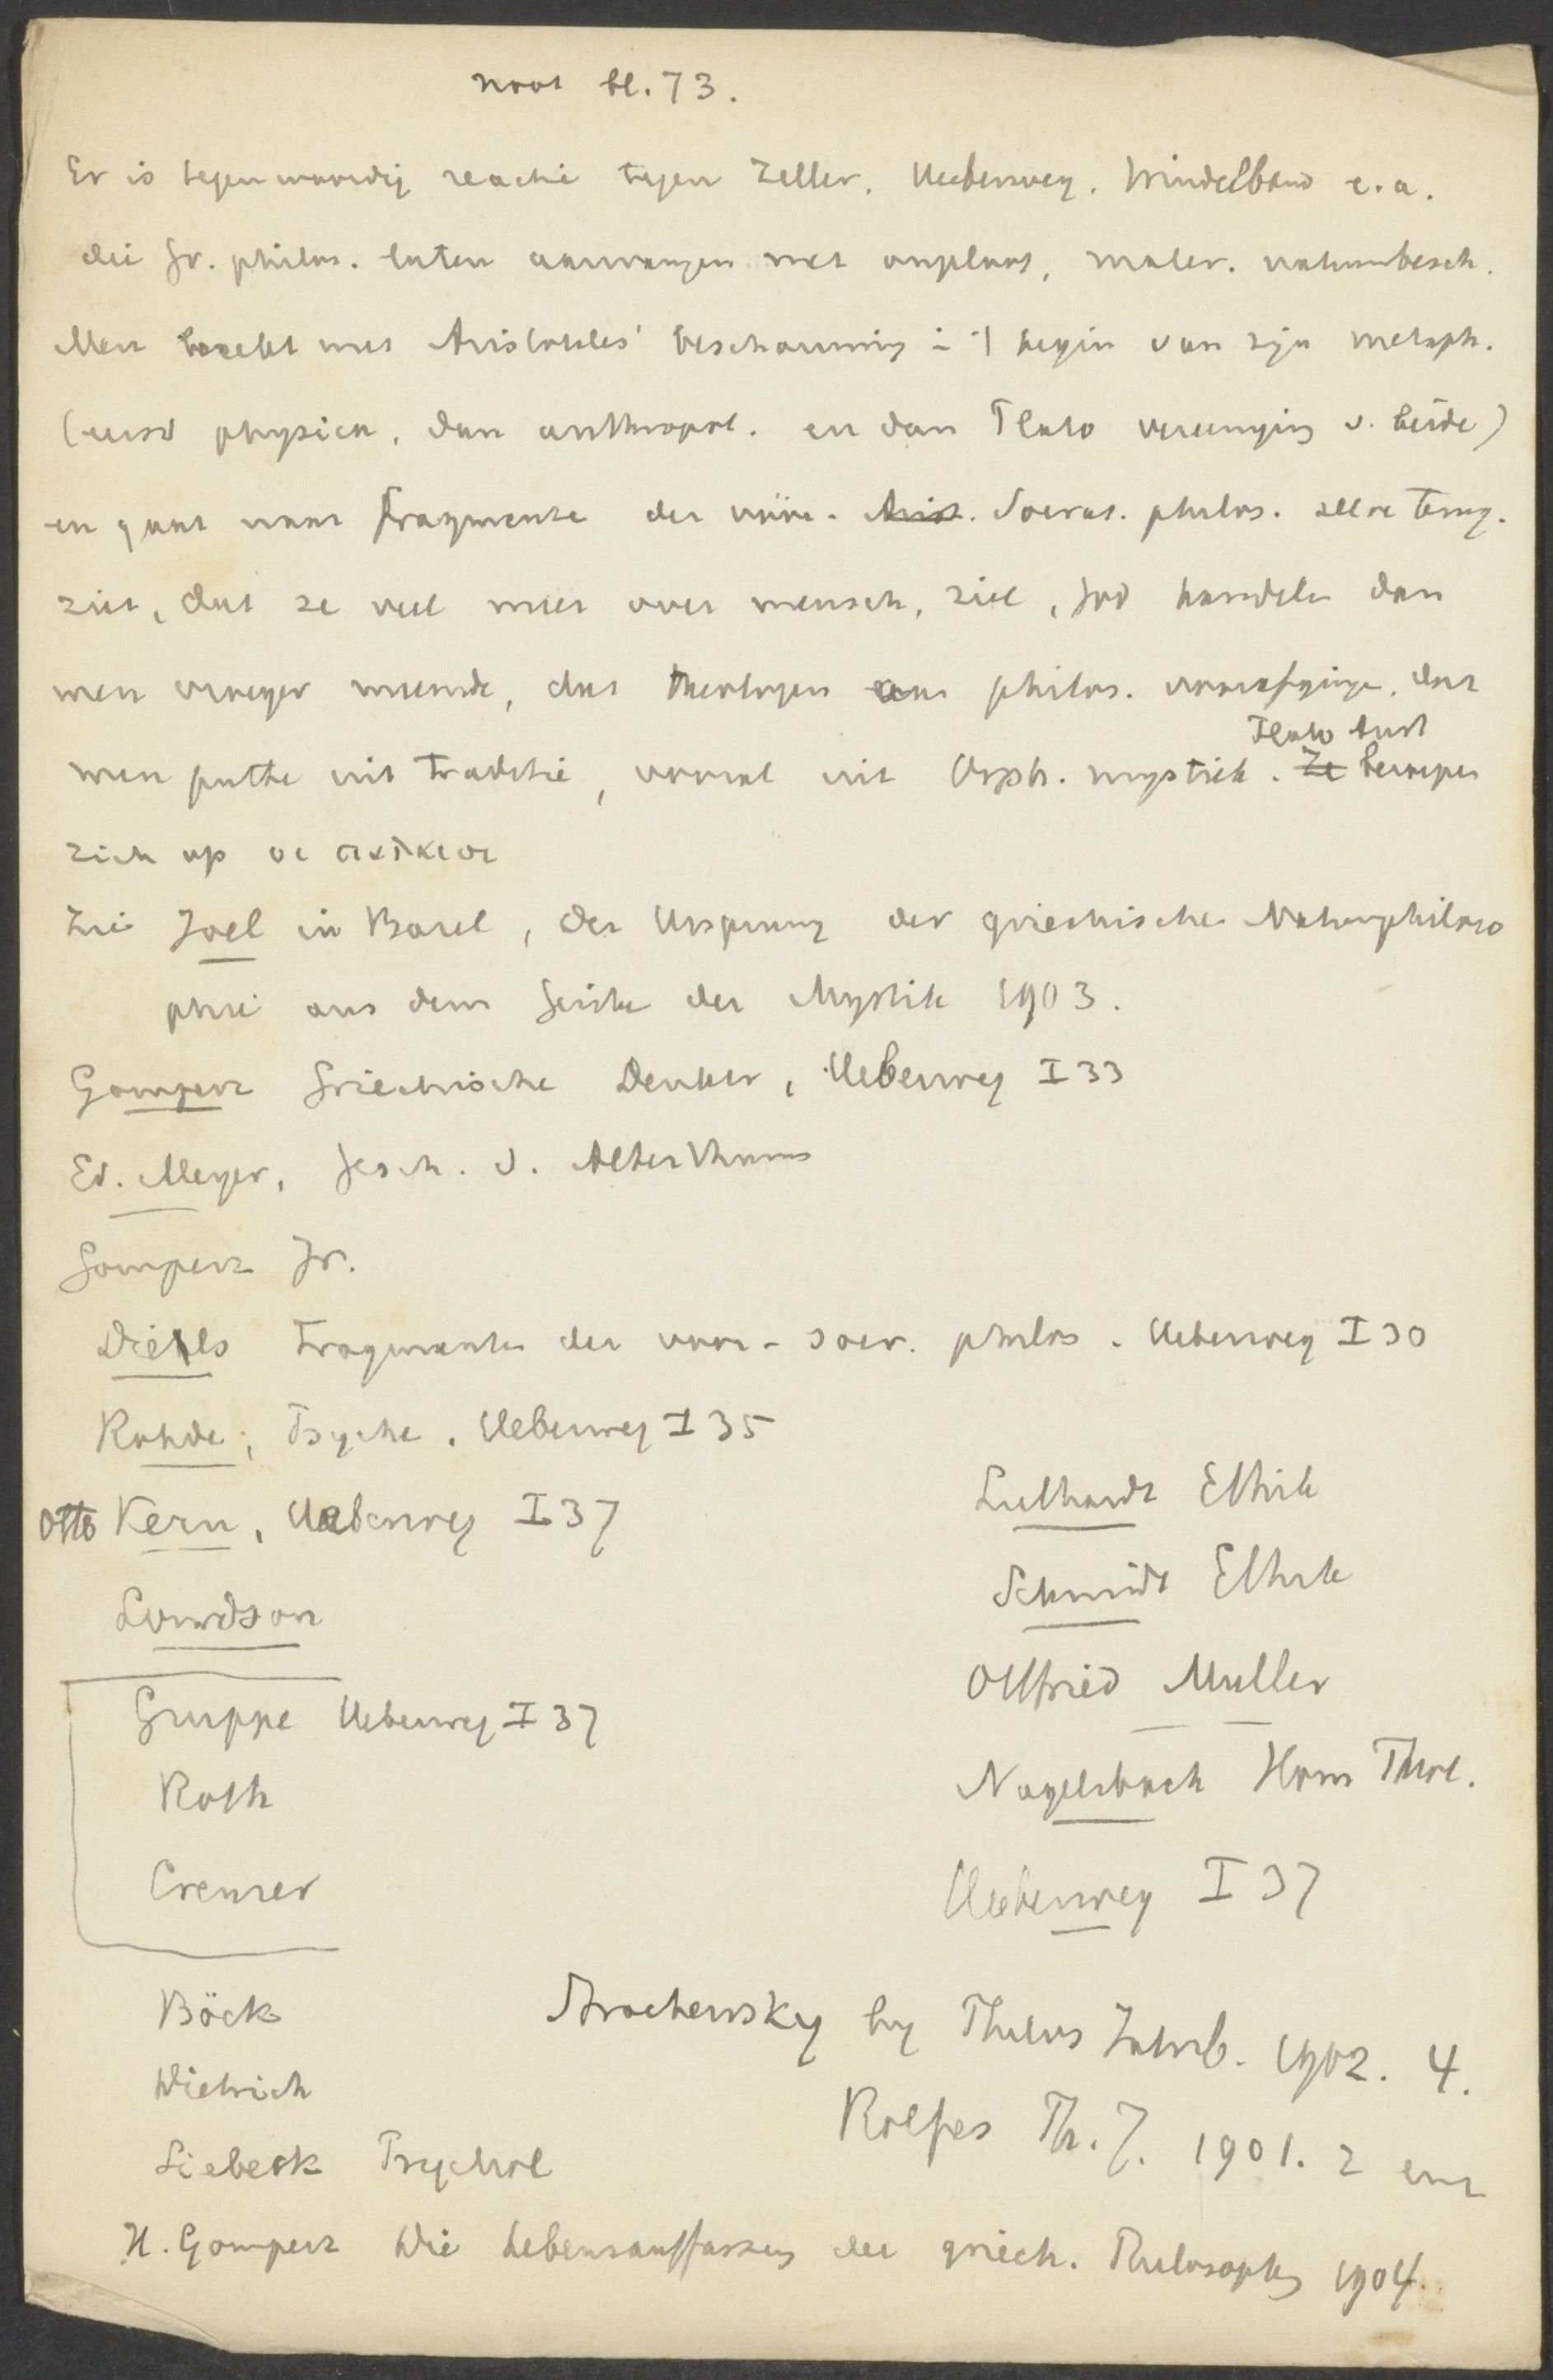 noot bl. 73.
Er is tegenwoordig reactie tegen Zeller, Ueberweg, Windelband e.a.
die Gr. philos. laten aanvangen met onplaats, mater. natuurbesch.
Men breekt met Aristoteles' beschouwing i/h begin van zijn metaph.
(eerst physica, dan anthropol. en dan Plato vereeniging v. beide)
en gaat naar fragmente der vóór- Arist. Socrat. philos. zelve terug.
ziet, dat ze veel meer over mensch, ziel, God handelen dan
men vroeger meende, dat theologen aan philos. voorafgingen, dat
men putte uit traditie, vooral uit Orph. mystiek. Ze beroepen
Plato Arist
zich op οι παλαιοι
Zie Joel in Basel, Der Ursprung der griechische Naturphiloso
phie aus dem Geiste der Mystik 1903.
Gomperz Griechische Denker, Ueberweg I 33
Ed. Meyer, Gesch. d. Alterthums
Gomperz Jr.
Diels Fragmente der voor-socr. philos. Ueberweg I 30
Rohde, Psyche. Ueberweg I 35
Otto Kern, Ueberweg I 37
Luthardt Ethik
Schmidt Ethik
Gruppe Ueberweg I 37
Otfried Muller
Roth
Nagelsbach Hom Theol.
Creuzer
Ueberweg I 37
Böck
by Philos Jahrb. 1902. 4.
Dietrich
Rolfes Ph. J. 1901. 2 enz
Siebeck Psychol
H. Gomperz Die Lebensauffassung der griech. Philosophen 1904.